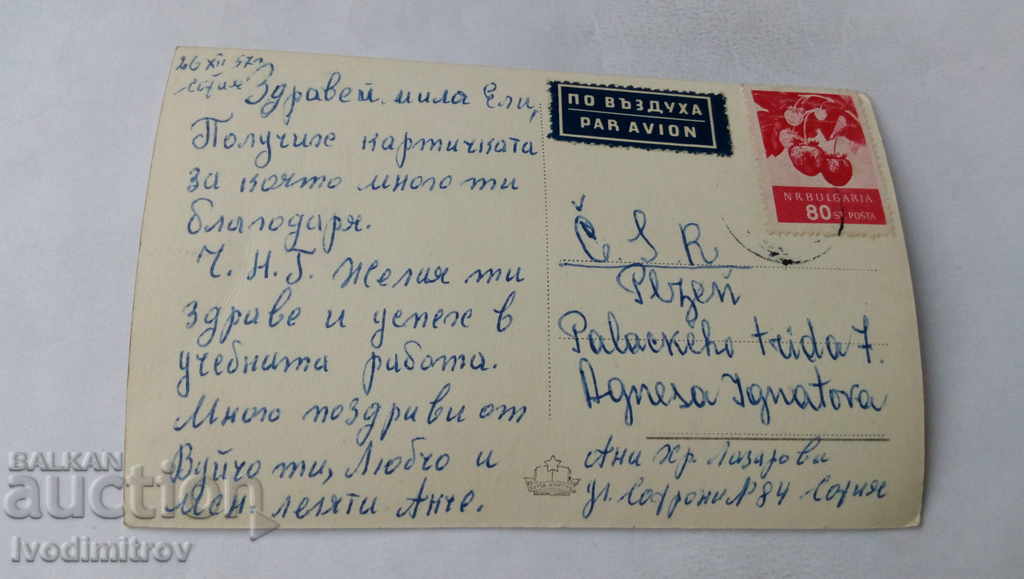 26 XII 57г.
София
Здравей мила Ели,
Получих картичката
за която много ти
благодаря.
Ч. Н. Г. Желая ти
здраве и успех в
учебната работа.
Много поздрави от
Вуйчо ти, Любчо и
лелята Анче.
ПО ВЪЗДУХА
PAR AVION
N.R.BULGARIA
80 ST. POSTA
Č. S R
Plzeň
Palackého trida 7.
Agnesa Ignatova
Ани Хр. Лазарови
ул. Софрони № 84 София
BALKAN
auction
Ivodimitrov